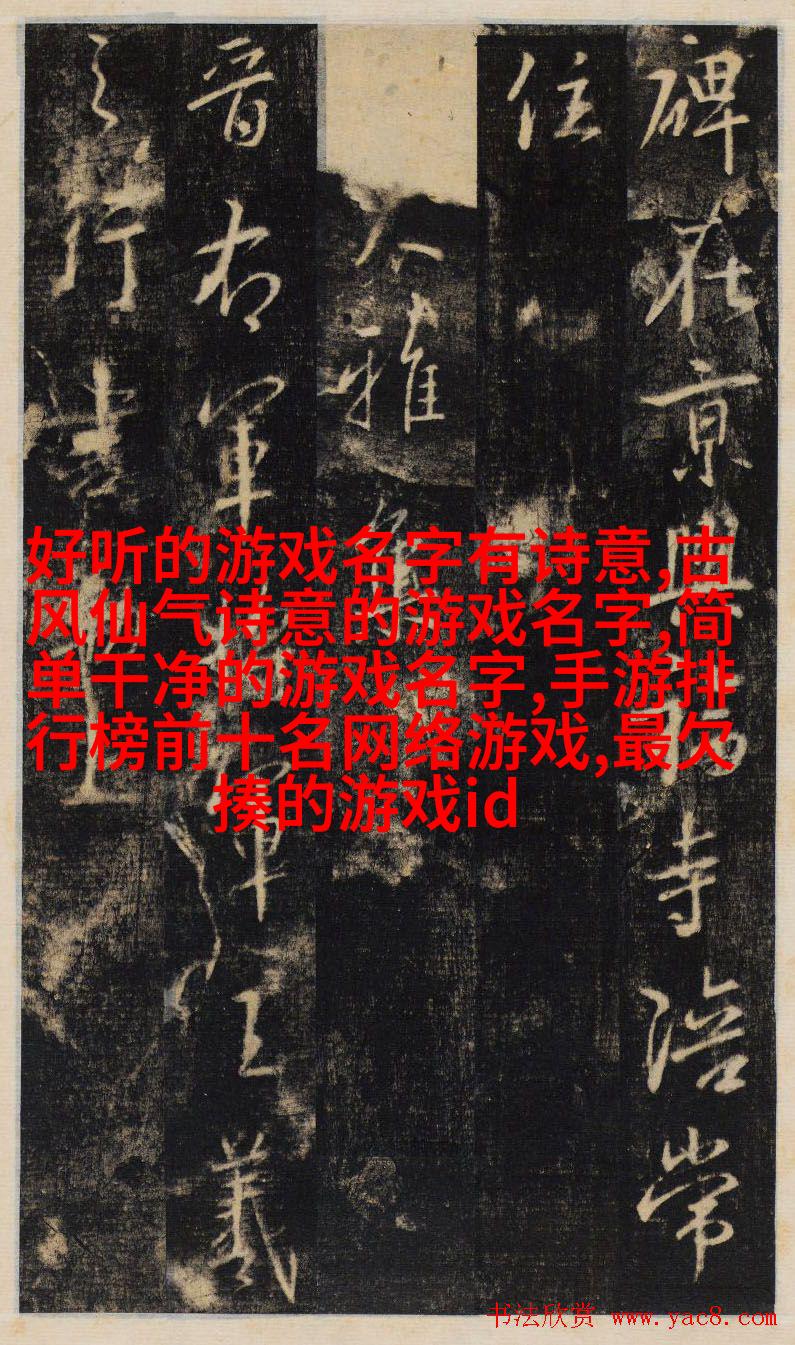 碑在京興福寺陪常
住
大雅集
晋右軍將軍王羲
之行書
好听的游戏名字有诗意,古
风仙气诗意的游戏名字,简
单干净的游戏名字,手游排
行榜前十名网络游戏,最欠
揍的游戏id
书法欣赏 www.yac8.com